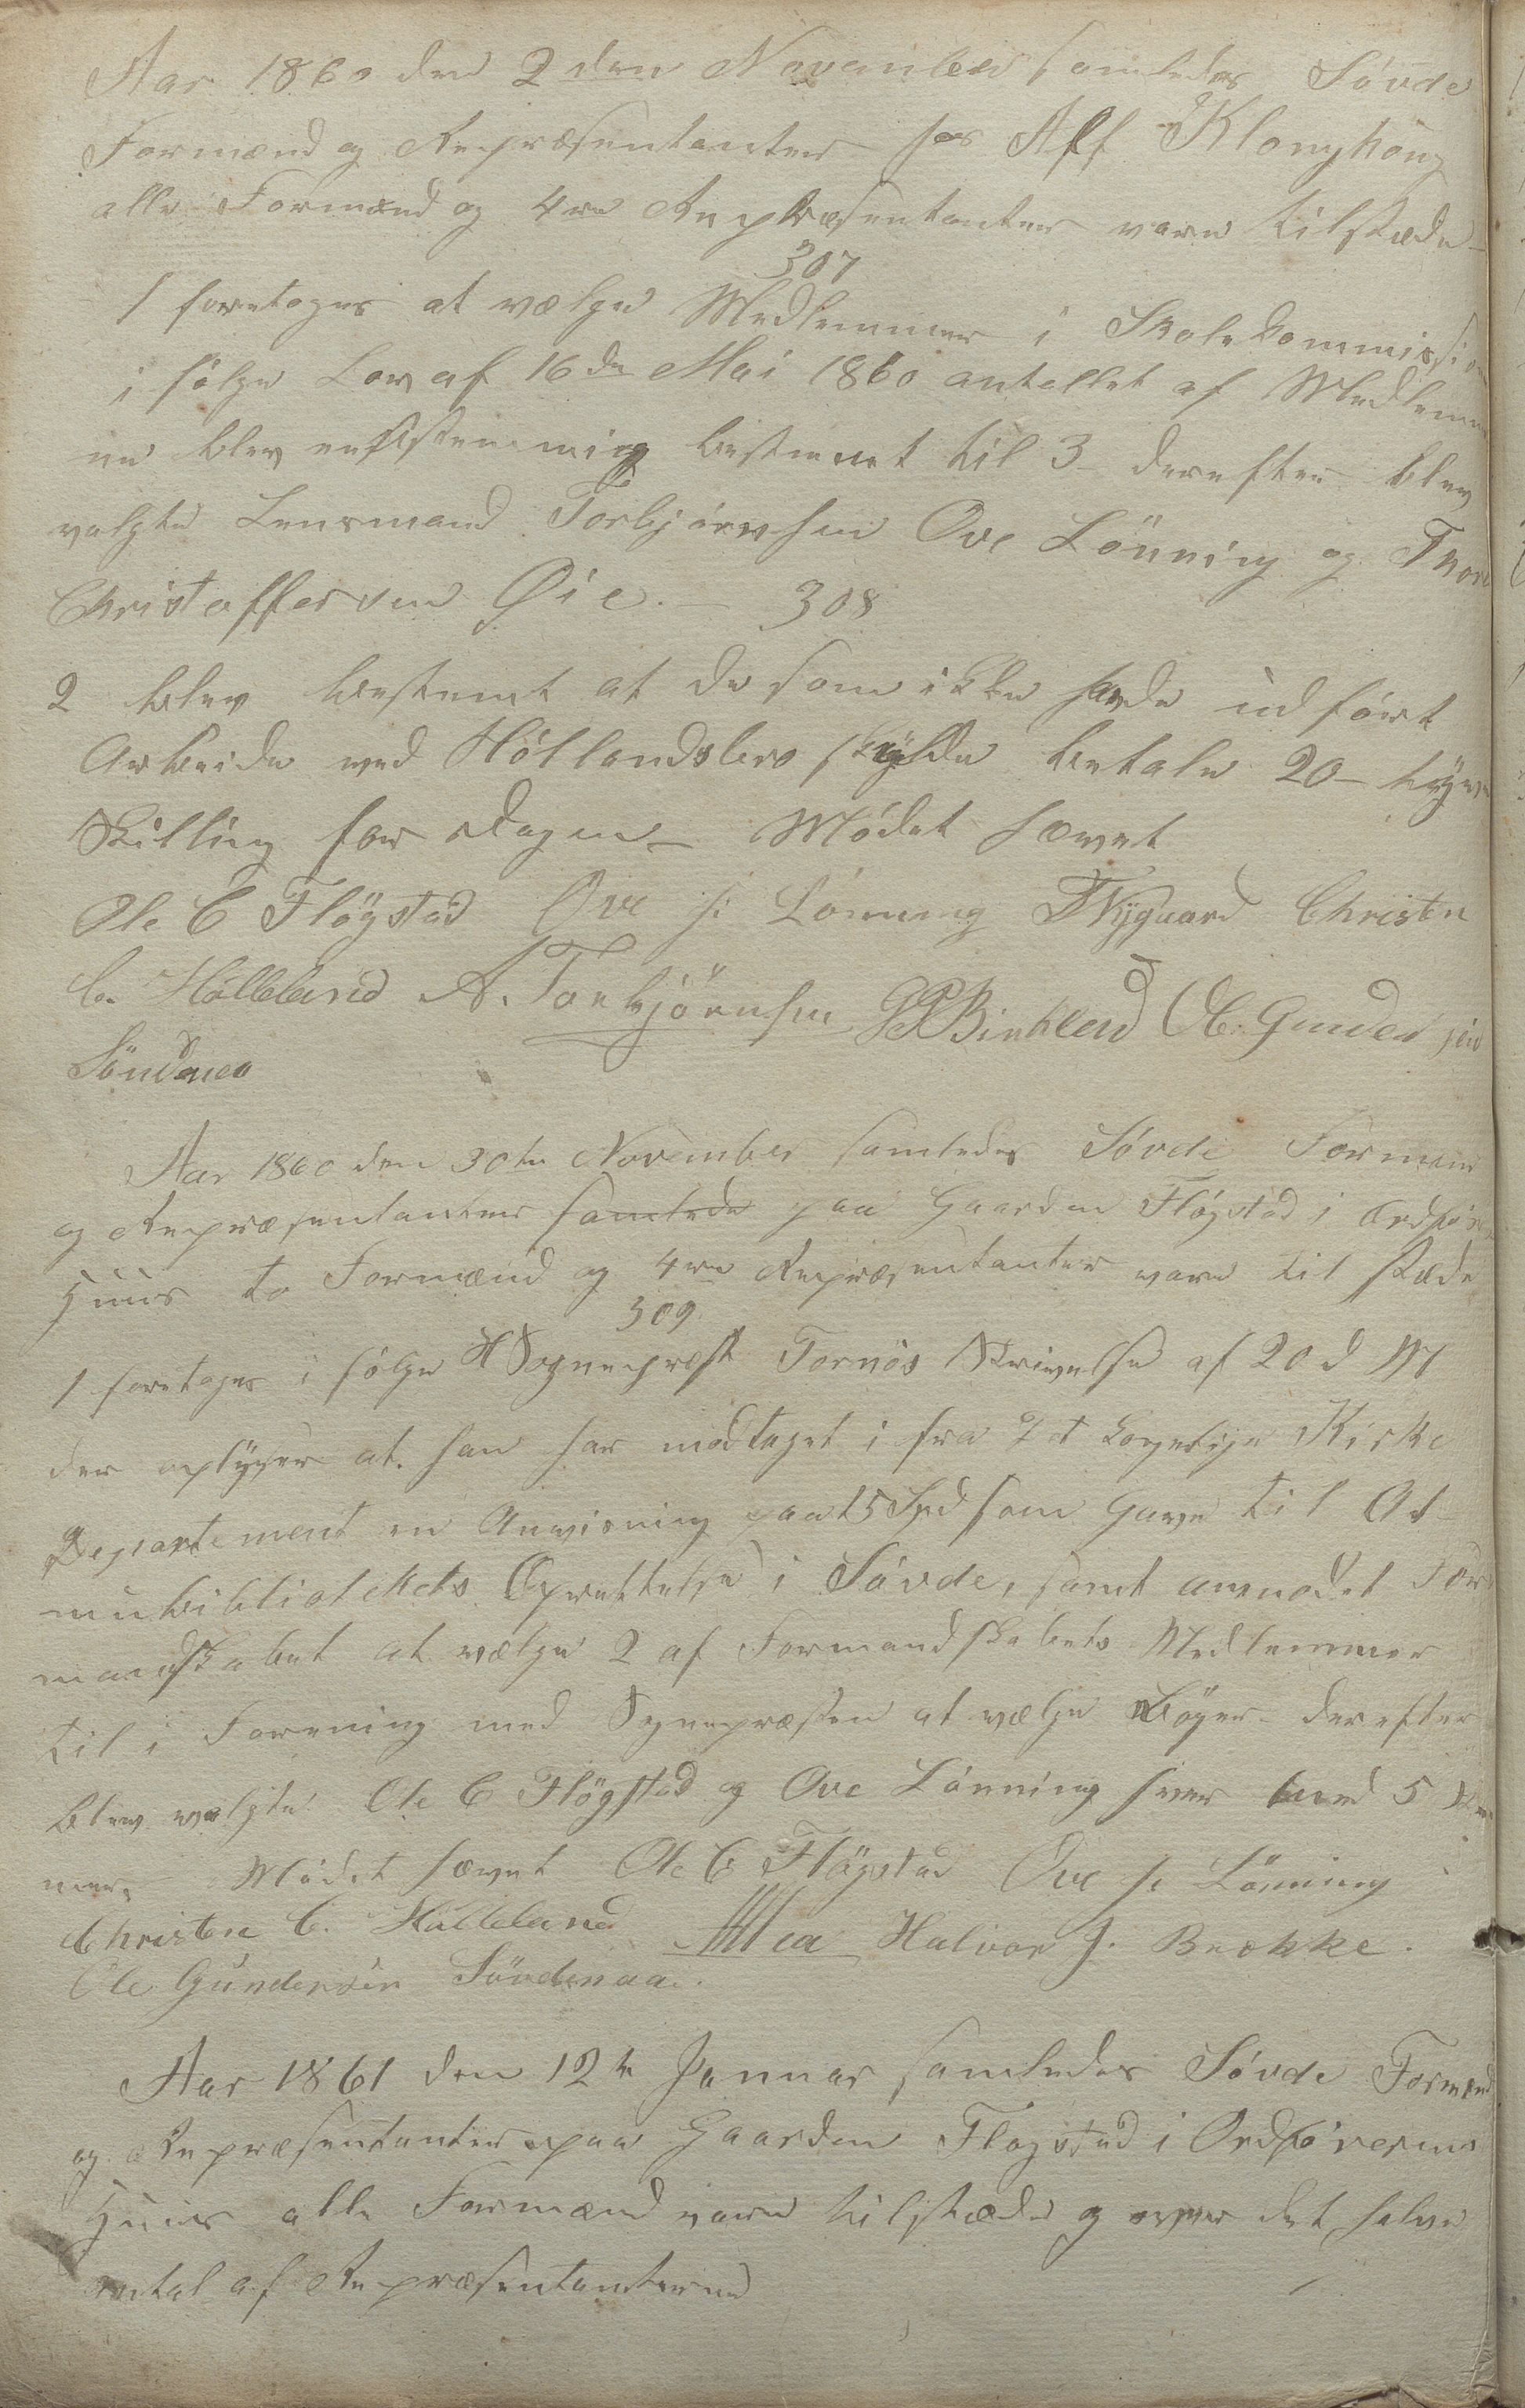 Aar 1860 den 2den November samledes Søvde
Formænd og Repræsentanter hos Alf Klonghoug
alle Formænd og 4re Repræsentanter vare tilstæde
307
1 foretoges at vælge Medlemmer i Skolekommissi
i følge Lov af 16de Mai 1860 antallet af Medlemm
ne blev eenstemmig bestemt til 3 derefter blev
valgte Lensmand Torbjørnsen Ove Lönning og Thore
Christoffersen Øie. — 308
2 blev bestemt at de som ikke havde udført
Arbeide ved Høllandsbro skulde betale 20 - tyve
Skilling for Dagen — Mødet hævet
Ole C Flögstad Ove J: Lønning Nygaard Christen
C. Hølleland A. Torbjörnsen Birkland O: Gunder sen
Søndenaa
Aar 1860 den 30te November samledes Søvde Formænd
og Repræsentanter samlede paa Gaarden Fløgstad i Ordfør
Huus to Formænd og 4re Repræsentanter vare til stæde
309
1 foretoges i følge H Sognepræst Tornøs Skrivelse af 20 d M
der oplyser at han har modtaget i fra det Kongelige Kirke
Departement en Anvisning paa 15 Spd som Gave til Al-
muebibliotekets Oprettelse i Søvde, samt anmodet For
mandskabet at vælge 2 af Formandskabets Medlemmer
til i Forening med Sognepræsten at vælge Bøger - derefter
blev valgte Ole C Flögstad og Ove Lønning hver med 5 Stem
mer. Mødet hævet Ole C Flögstad Ove J: Lönning
Christen C. Hølleland Halvor J. Brekke.
Ole Gundersen Søndenaa.
Aar 1861 den 12te Januar samledes Søvde Formænd
og Repræsentanter paa Gaarden Flogstad i Ordførerens
Huus alle Formænd vare tilstæde og over det halve
antal af Repræsentanterne